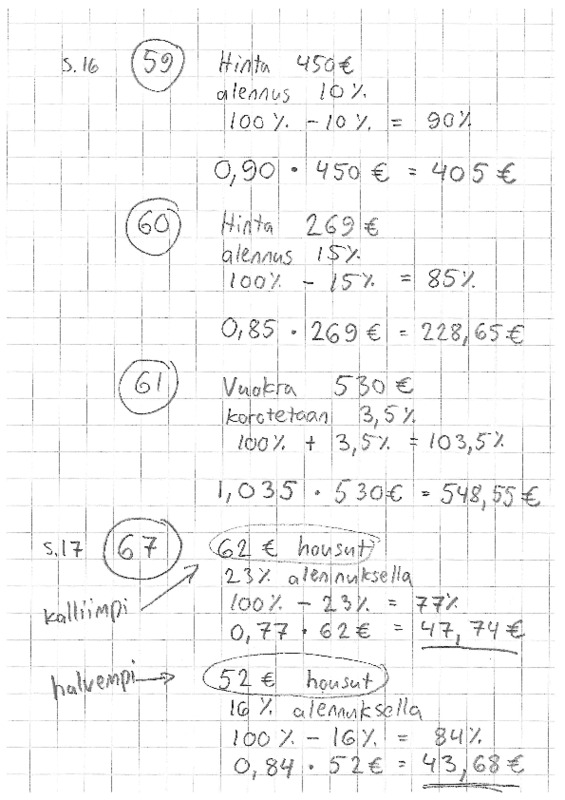 s.16 59 Hinta 450€
alennus 10%
100% - 10% = 90%
0,90 · 450 € = 405 €
60 Hinta 269 €
alennus 15%
100% - 15% = 85%
0,85 · 269 € = 228,65 €
61 Vuokra 530 €
korotetaan 3,5%
100% + 3,5% = 103,5%
1,035 · 530€ = 548,55€
s.17 67 62 € housut
23% alennuksella
kalliimpi 100% - 23% = 77%
0,77 · 62€ = 47,74 €
halvempi 52 € housut
16% alennuksella
100% - 16% = 84%
0,84 · 52€ = 43,68 €